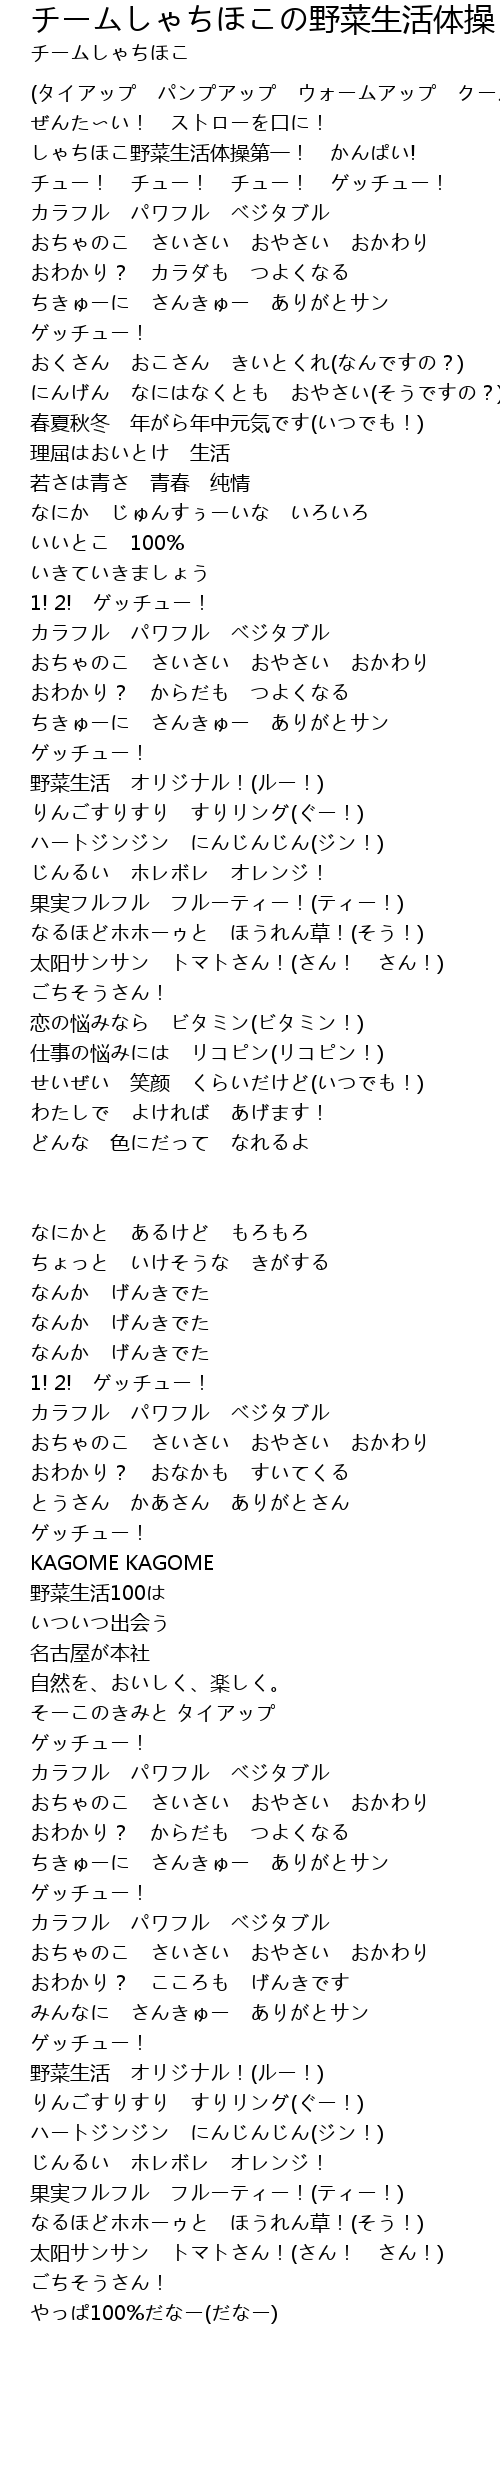 チームしゃちほこの野菜生活体操
チームしゃちほこ
(タイアップ　パンプアップ　ウォームアップ　クー
ぜんた〜い！　ストローを口に！
しゃちほこ野菜生活体操第一！　かんぱい!
チュー！　チュー！　チュー！　ゲッチュー！
カラフル　パワフル　ベジタブル
おちゃのこ　さいさい　おやさい　おかわり
おわかり？　カラダも　つよくなる
ちきゅーに　さんきゅー　ありがとサン
ゲッチュー！
おくさん　おこさん　きいとくれ(なんですの？)
にんげん　なにはなくとも　おやさい(そうですの？)
春夏秋冬　年がら年中元気です(いつでも！)
理屈はおいとけ　生活
若さは青さ　青春　純情
なにか　じゅんすぅーいな　いろいろ
いいとこ　100%
いきていきましょう
1! 2!　ゲッチュー！
カラフル　パワフル　ベジタブル
おちゃのこ　さいさい　おやさい　おかわり
おわかり？　からだも　つよくなる
ちきゅーに　さんきゅー　ありがとサン
ゲッチュー！
野菜生活　オリジナル！(ルー！)
りんごすりすり　すりリング(ぐー！)
ハートジンジン　にんじんじん(ジン！)
じんるい　ホレボレ　オレンジ！
果実フルフル　フルーティー！(ティー！)
なるほどホホーゥと　ほうれん草！(そう！)
太阳サンサン　トマトさん！(さん！　さん！)
ごちそうさん！
恋の悩みなら　ビタミン(ビタミン！)
仕事の悩みには　リコピン(リコピン！)
せいぜい　笑颜　くらいだけど(いつでも！)
わたしで　よければ　あげます！
どんな　色にだって　なれるよ
なにかと　あるけど　もろもろ
ちょっと　いけそうな　きがする
なんか　げんきでた
なんか　げんきでた
なんか　げんきでた
1! 2!　ゲッチュー！
カラフル　パワフル　ベジタブル
おちゃのこ　さいさい　おやさい　おかわり
おわかり？　おなかも　すいてくる
とうさん　かあさん　ありがとさん
ゲッチュー！
KAGOME KAGOME
野菜生活100は
いついつ出会う
名古屋が本社
自然を、おいしく、楽しく。
そーこのきみと タイアップ
ゲッチュー！
カラフル　パワフル　ベジタブル
おちゃのこ　さいさい　おやさい　おかわり
おわかり？　からだも　つよくなる
ちきゅーに　さんきゅー　ありがとサン
ゲッチュー！
カラフル　パワフル　ベジタブル
おちゃのこ　さいさい　おやさい　おかわり
おわかり？　こころも　げんきです
みんなに　さんきゅー　ありがとサン
ゲッチュー！
野菜生活　オリジナル！(ルー！)
りんごすりすり　すりリング(ぐー！)
ハートジンジン　にんじんじん(ジン！)
じんるい　ホレボレ　オレンジ！
果実フルフル　フルーティー！(ティー！)
なるほどホホーゥと　ほうれん草！(そう！)
太阳サンサン　トマトさん！(さん！　さん！)
ごちそうさん！
やっぱ100%だなー(だなー)